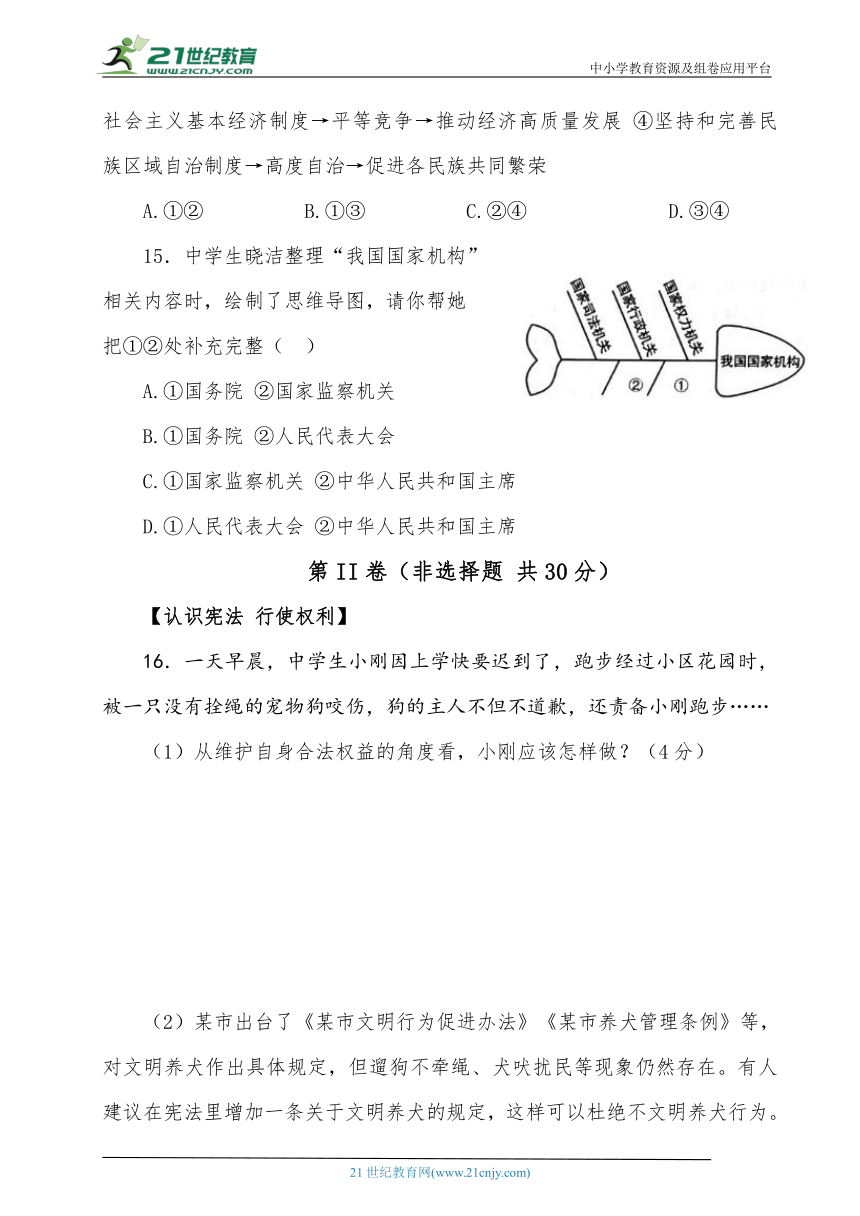 21世纪教育
www.21cnjy.com
中小学教育资源及组卷应用平台
社会主义基本经济制度→平等竞争→推动经济高质量发展 ④坚持和完善民
族区域自治制度→高度自治→促进各民族共同繁荣
A.①② B.①③ C.②④ D.③④
15．中学生晓洁整理“我国国家机构”
相关内容时，绘制了思维导图，请你帮她
把①②处补充完整（ ）
国家司法机关
国家行政机关
国家权力机关
我国国家机构
②
①
A.①国务院 ②国家监察机关
B.①国务院 ②人民代表大会
C.①国家监察机关 ②中华人民共和国主席
D.①人民代表大会 ②中华人民共和国主席
第II卷（非选择题 共30分）
【认识宪法 行使权利】
16．一天早晨，中学生小刚因上学快要迟到了，跑步经过小区花园时，
被一只没有拴绳的宠物狗咬伤，狗的主人不但不道歉，还责备小刚跑步……
（1）从维护自身合法权益的角度看，小刚应该怎样做？（4分）
（2）某市出台了《某市文明行为促进办法》《某市养犬管理条例》等，
对文明养犬作出具体规定，但遛狗不牵绳、犬吠扰民等现象仍然存在。有人
建议在宪法里增加一条关于文明养犬的规定，这样可以杜绝不文明养犬行为。
21世纪教育网(www.21cnjy.com)